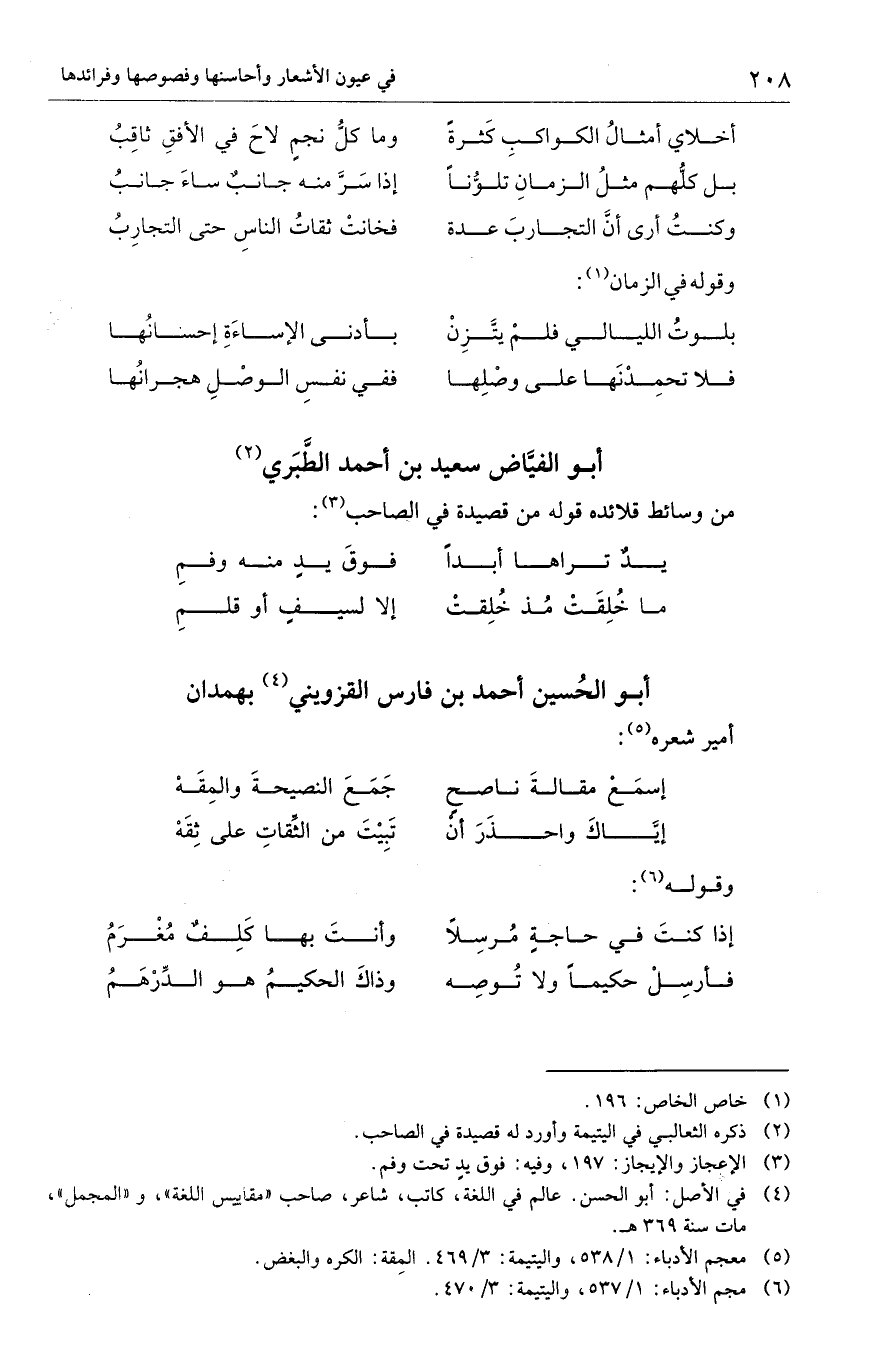 ٢٠٨ في عيون الأشعار وأحاسنها وفصوصها وفرائدها
أخلاي أمثالُ الكواكبِ كَثرةً وما كلُّ نجمٍ لاحَ في الأفقِ ثاقِبُ
بل كلُّهم مثلُ الزمانِ تلوُّناً إذا سَرَّ منه جانبٌ ساءَ جانبُ
وكنتُ أرى أنَّ التجاربَ عدة فخانتْ ثقاتُ الناسِ حتى التجارِبُ
وقوله في الزمان(١):
بلوتُ الليالي فلمْ يتَّزِنْ بأدنى الإساءَةِ إحسانُها
فلا تحمِدْنَها على وصْلِها ففي نفسِ الوصْلِ هجرانُها
أبو الفيَّاض سعيد بن أحمد الطَّبَري(٢)
من وسائط قلائده قوله من قصيدة في الصاحب(٣):
يدٌ تراها أبداً فوقَ يدٍ منه وفمِ
ما خُلِقَتْ مُذ خُلِقتْ إلا لسيفٍ أو قلمِ
أبو الحُسين أحمد بن فارس القزويني(٤) بهمدان
أمير شعره(٥):
إسمَعْ مقالةَ ناصحٍ جَمَعَ النصيحةَ والمِقَهْ
إيَّاكَ واحذَرَ أنْ تَبِيْتَ من الثِّقاتِ على ثِقَهْ
وقوله(٦):
إذا كنتَ في حاجةٍ مُرسِلاً وأنتَ بها كَلِفٌ مُغْرَمُ
فأرسِلْ حكيماً ولا تُوصِه وذاكَ الحكيمُ هو الدِّرْهَمُ
(١) خاص الخاص: ١٩٦.
(٢) ذكره الثعالبي في اليتيمة وأورد له قصيدة في الصاحب.
(٣) الإعجاز والإيجاز: ١٩٧، وفيه: فوق يدٍ تحت وفم.
(٤) في الأصل: أبو الحسن. عالم في اللغة، كاتب، شاعر، صاحب «مقاييس اللغة»، و «المجمل»،
مات سنة ٣٦٩ هـ.
(٥) معجم الأدباء: ٥٣٨/١، واليتيمة: ٤٦٩/٣. المِقة: الكره والبغض.
(٦) مجم الأدباء: ٥٣٧/١، واليتيمة: ٤٧٠/٣.